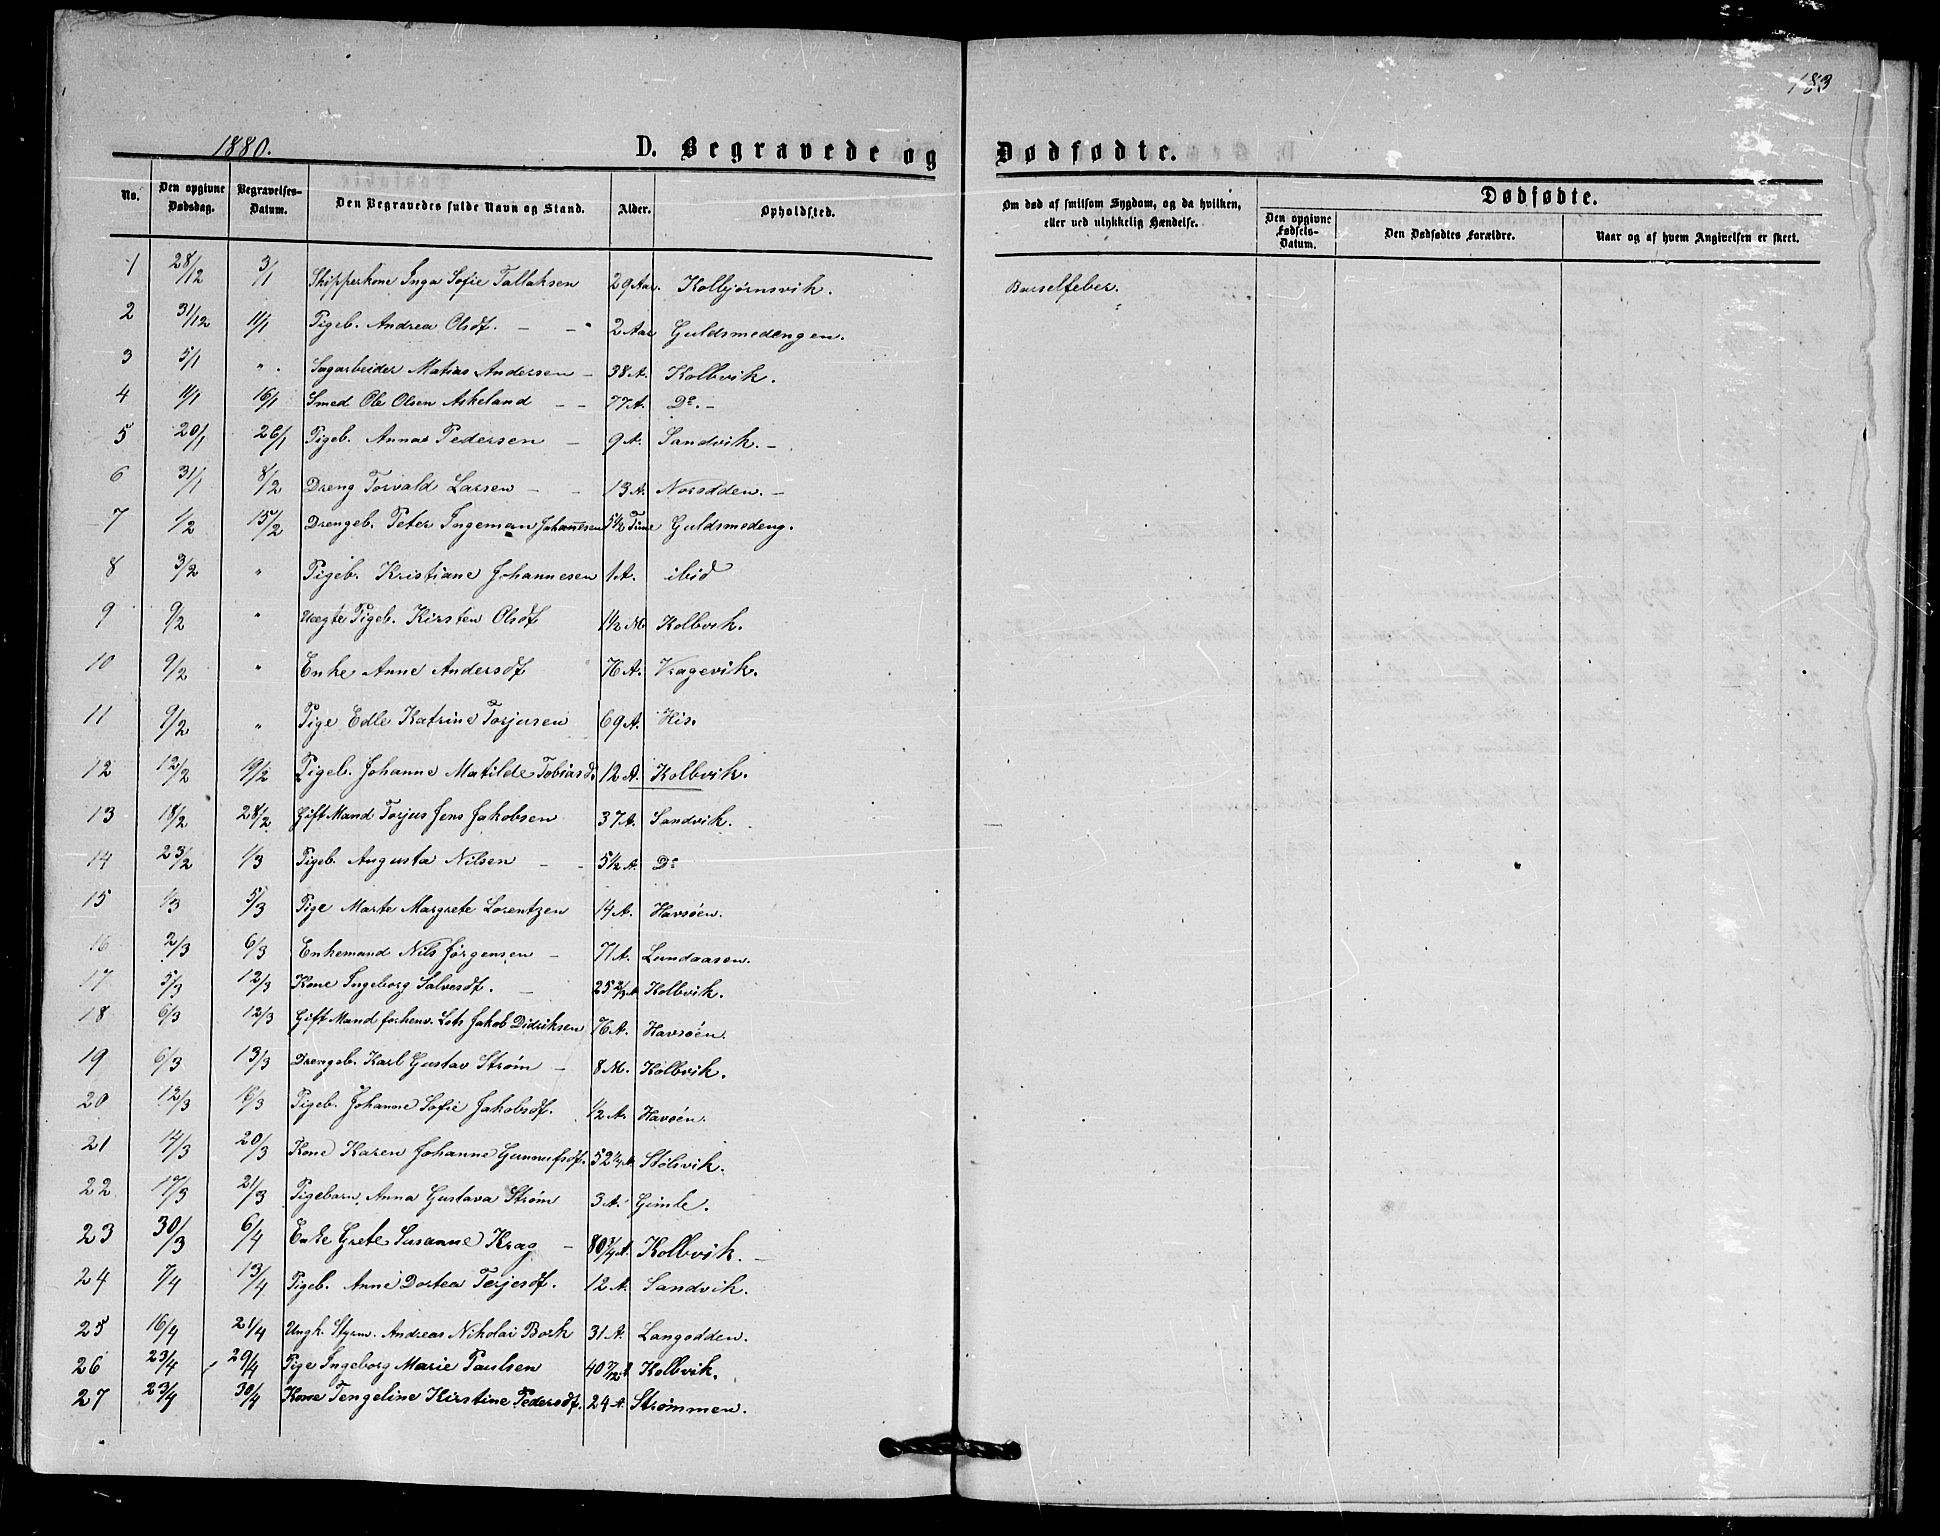 183
1880.
D. Begravede og Dødfødte.
No. Den opgivne Dødsdag. Begravelses-Datum. Den Begravedes fulde Navn og Stand. Alder. Opholdsted. Om død af smitsom Sygdom, og da hvilken, eller ved ulykkelig Hændelse. Dødfødte.
Den opgivne Fødsels-Datum. Den Dødfødtes Forældre. Naar og af hvem Angivelsen er skeet.
1 28/12 3/1 Skipperkone Inga Sofie Tallaksen 29 Aar. Kolbjørnsvik. Barselfeber.
2 31/12 11/1 Pigeb. Andrea Olsdt. - - 2 Aar Guldsmedengen.
3 5/1 " . Sagarbeider Matias Andersen - 38 A. Kolbvik.
4 11/1 16/1 Smed Ole Olsen Askeland - - 77 A. Do. -
5 20/1 26/1 Pigeb. Anna Pedersen - 9 A. Sandvik. -
6 31/1 8/2 Dreng Torvald Larsen - - 13 A. Norodden. -
7 1/2 15/2 Drengeb. Peter Ingeman Johannesen 5 1/2 Time Guldsmedeng.
8 3/2 " Pigeb. Kristiane Johannesen 1 A. ibid
9 9/2 " Uægte Pigeb. Kirsten Olsdt 1 1/2 M Kolbvik.
10 9/2 " Enke Anne Andersdt 76 A. Vragevik.
11 9/2 " Pige Edle Katrine Torjusen 69 A. His.
12 12/2 19/2 Pigeb. Johanne Matilde Tobiasd. 12 A. Kolbvik.
13 18/2 28/2 Gift Mand Torjus Jens Jakobsen 37 A. Sandvik.
14 23/2 1/3 Pigeb. Augusta Nilsen - - 5 1/2 A. Do
15 1/3 5/3 Pige Marte Margrete Lorentzen 14 A. Havsöen.
16 2/3 6/3 Enkemand Nils Jørgensen - 71 A. Lundaasen.
17 5/3 12/3 Kone Ingeborg Salvesdt. - 25 2/3 A Kolbvik.
18 6/3 12/3 Gift Mand forhenv. Lots Jakob Didriksen 76 A. Havsöen.
19 6/3 13/3 Drengeb. Karl Gustav Strøm - 8 M. Kolbvik.
20 12/3 16/3 Pigeb. Johanne Sofie Jakobsdt. 1/2 A. Havsöen.
21 14/3 20/3 Kone Karen Johanne Gunnufsdt. 52 A Stølsvik.
22 17/3 21/3 Pigebarn Anna Gustava Strøm 3 A. Gimle.
23 30/3 6/4 Enke Grete Susanne Krag - 80 A. Kolbvik. -
24 7/4 13/4 Pigeb. Anne Dortea Terjesdt. 12 A. Sandvik.
25 16/4 21/4 Ungk. Styrm. Andreas Nikolai Bork 31 A. Langodden.
26 23/4 29/4 Pige Ingeborg Marie Paulsen 40 7/12 A Kolbvik.
27 23/4 30/4 Kone Tengeline Kirstine Pedersdt. 24 A. Strømmen.